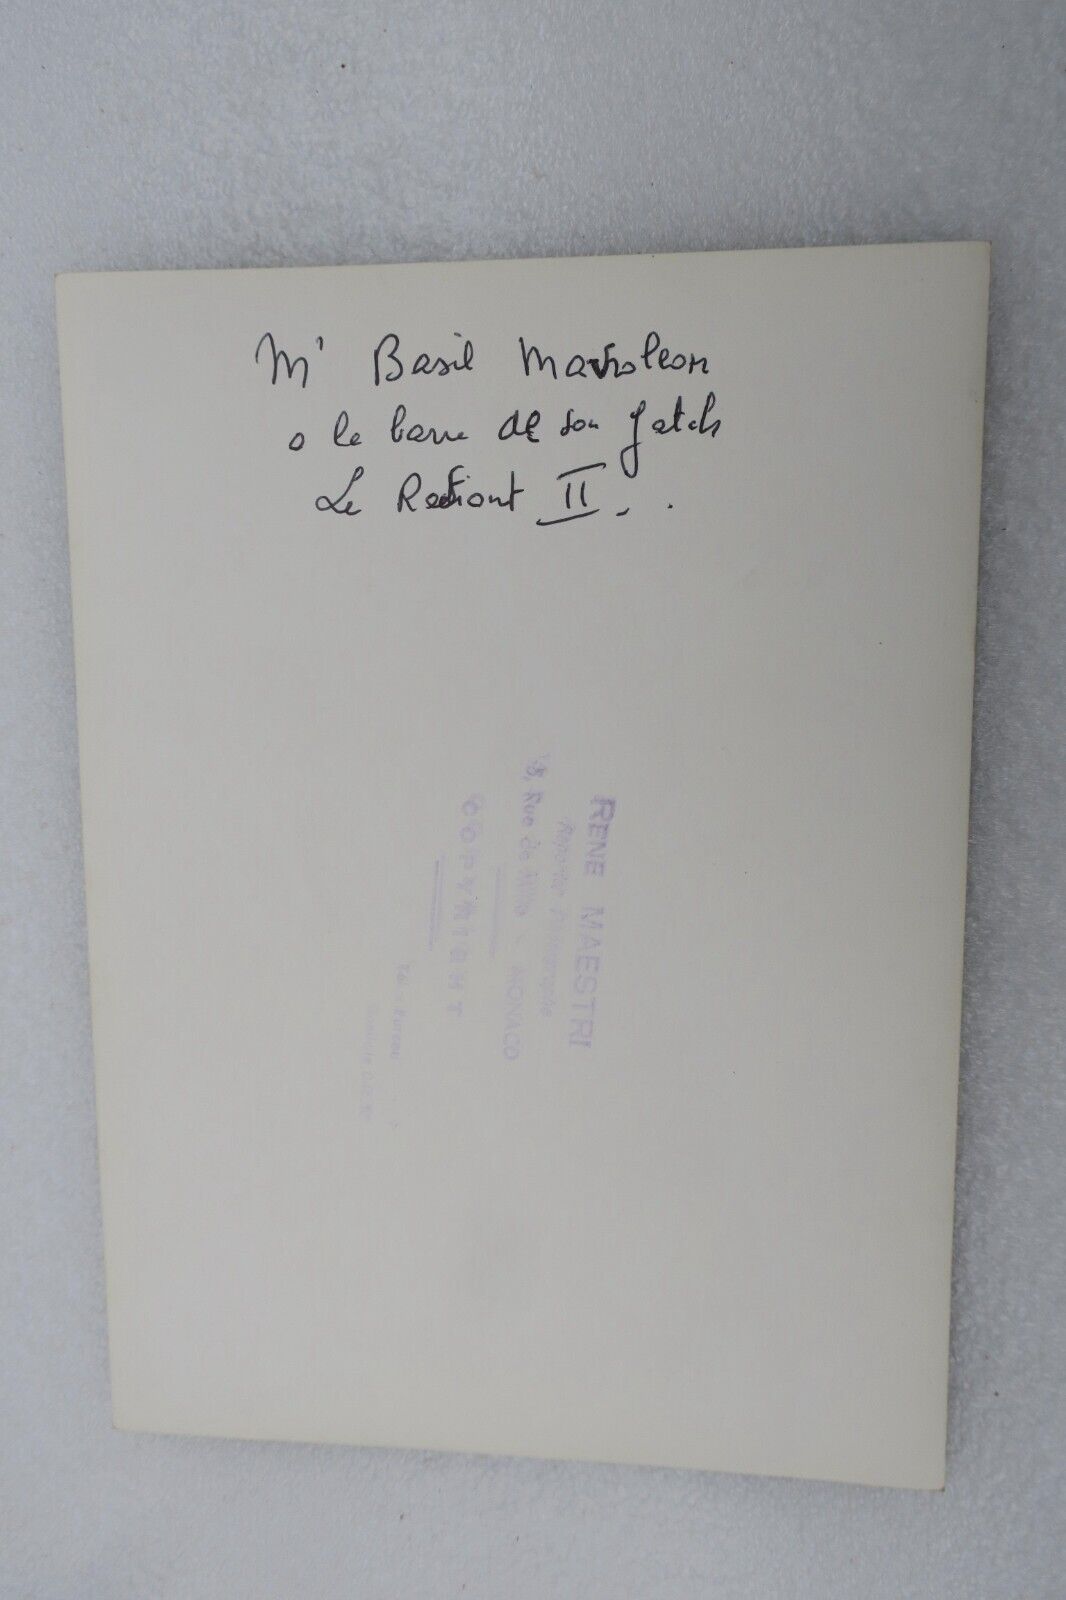 Mr Basil Mavroleon
a la barre de son Yatch
Le Radiant II . .
RENE MAESTRI
Reporter Photographe
Rue de Millo - MONACO
COPYRIGHT
Tél. : Bureau